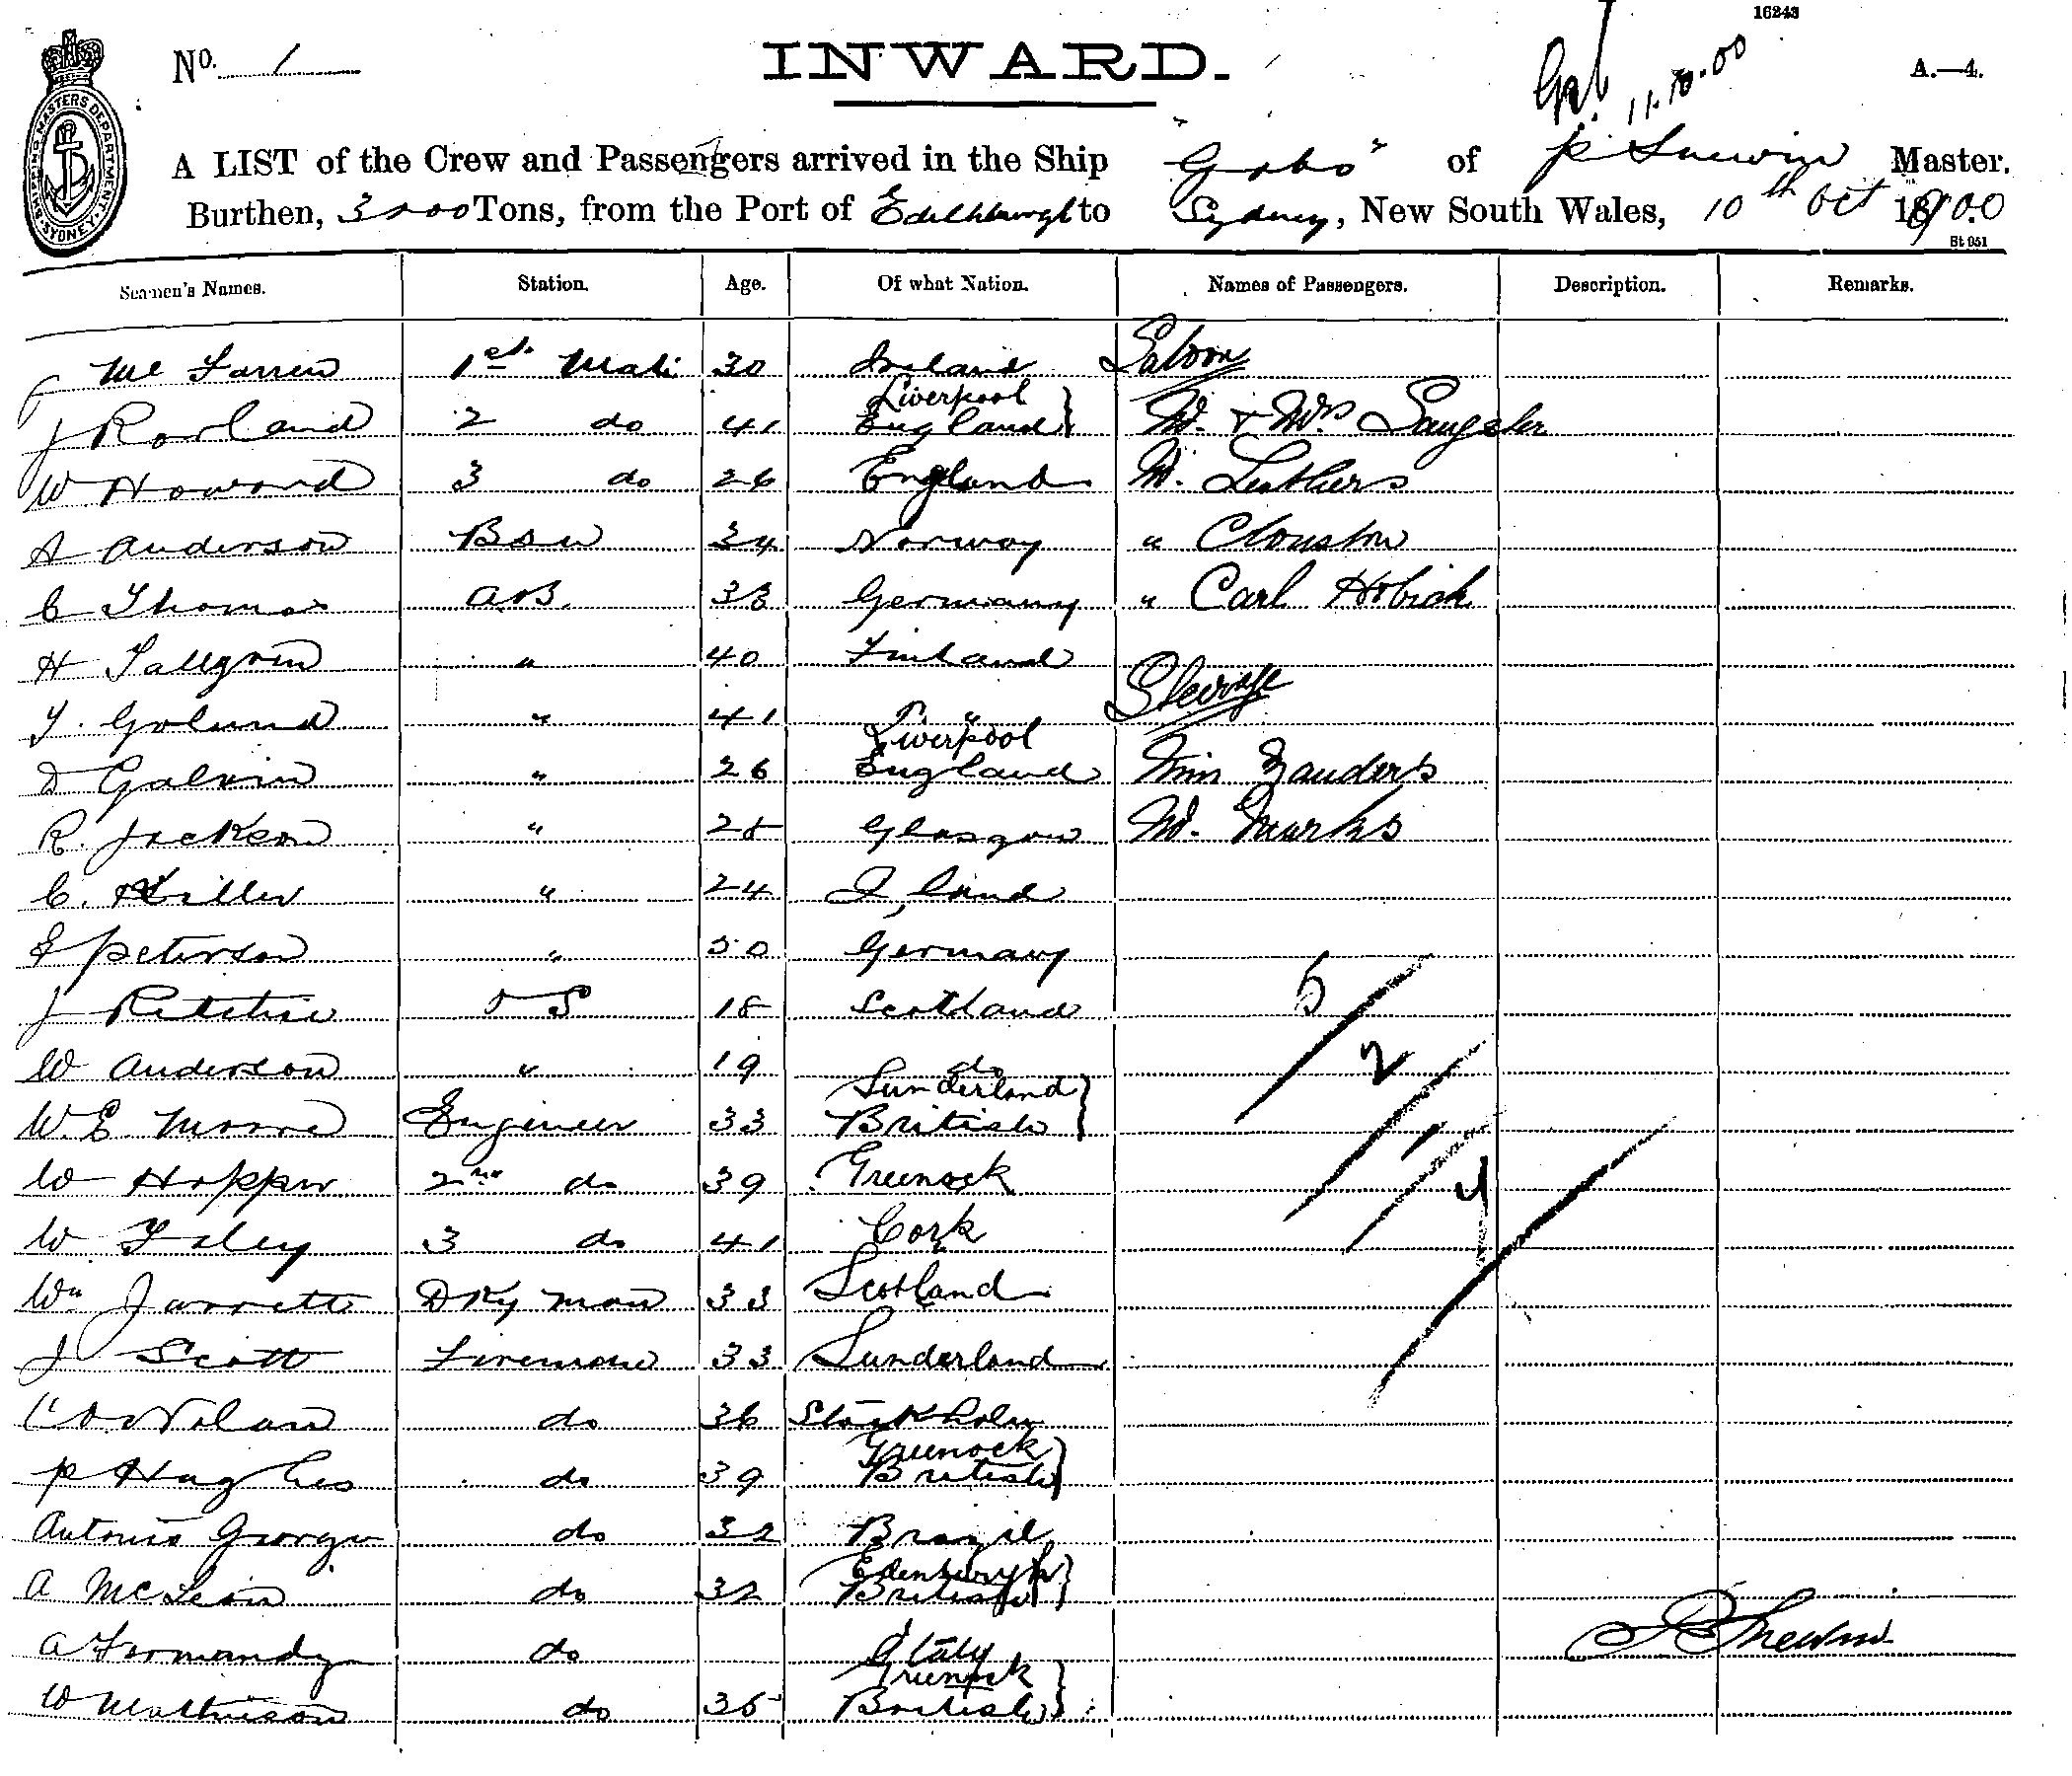 16243
No. 1
INWARD.
11.10.00
A.—4.
SHIPPING MASTERS DEPARTMENT. SYDNEY.
A LIST of the Crew and Passengers arrived in the Ship "Gabo" of P Shewin Master,
Burthen, 3000 Tons, from the Port of to Sydney, New South Wales, 10th Oct 1900
Bt 051
Seamen's Names. Station. Age. Of what Nation. Names of Passengers. Description. Remarks.
Mc Farren 1st Mate 30 Ireland Saloon
J Rowland 2 do 41 Liverpool England } Mr. & Mrs Sangster
W Howard 3 do 26 England Mr.
A Anderson Bsn 34 Norway " Clouston
C Thomas AB. 38 Germany " Carl
H 40 Finland
Steerage
41 "
D Galvin " 26 Liverpool England
R. Jackson " 28 Glasgow Mr. Marks
C. " 24
Peterson " 50 Germany
J Ritchie O S 18 Scotland 5
W Anderson " 19 do 2
W. E. Moore Engineer 33 Sunderland British } 1
W Hopper 2nd do 39 Greenock 4
W Foley 3 do 41 Cork
Wm Jarrett Dky man 33 Scotland
J Scott Fireman 33 Sunderland
Nolan do 36 Stockholm
P Hughes do 39 Greenock British }
Antonio George do 32 Brazil
A McLean do 32 Edenburgh British }
A do Italy
W Mathieson do 35 Greenock British }
P Shewin